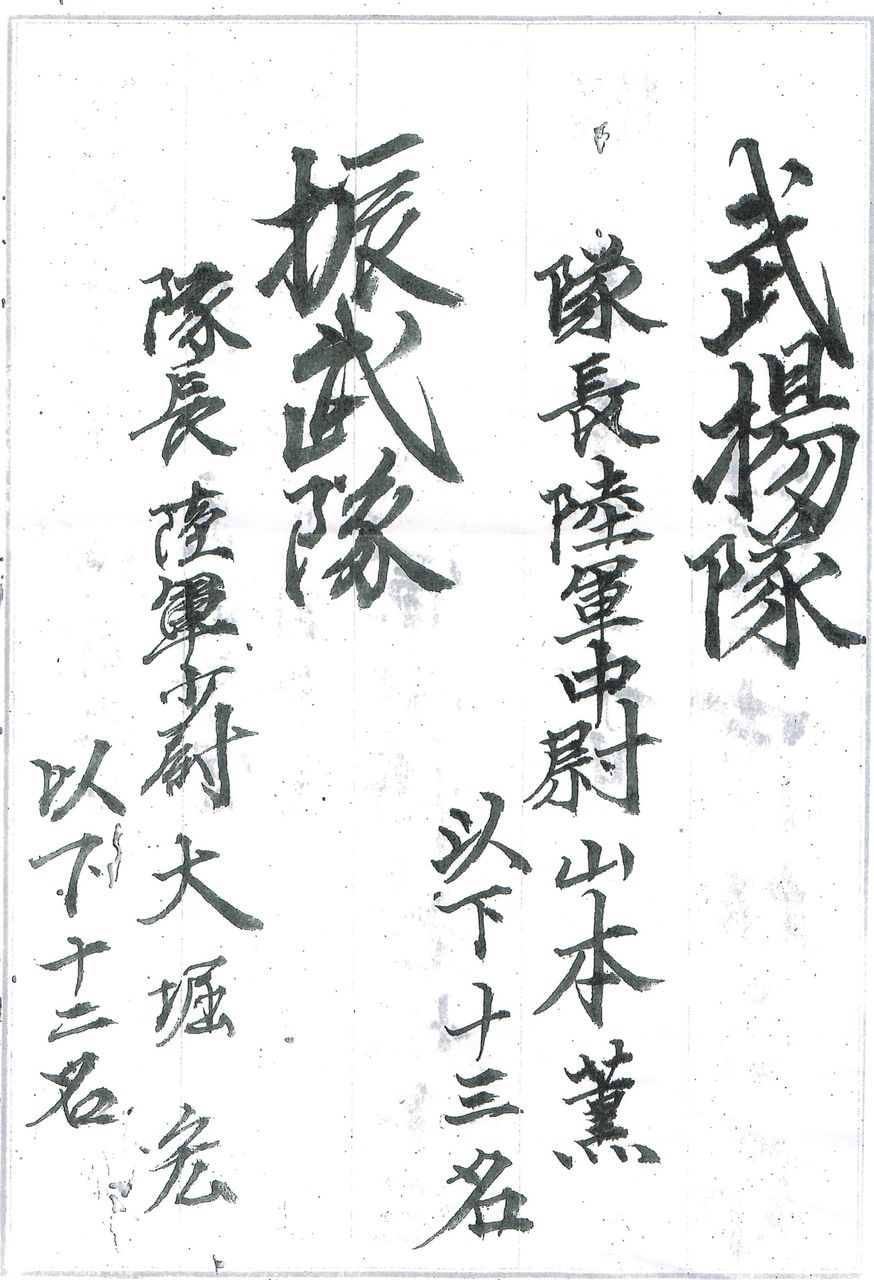 武楊隊
隊長陸軍中尉 山本 薫
以下十三名
振武隊
隊長 陸軍少尉 大堀
以下十二名